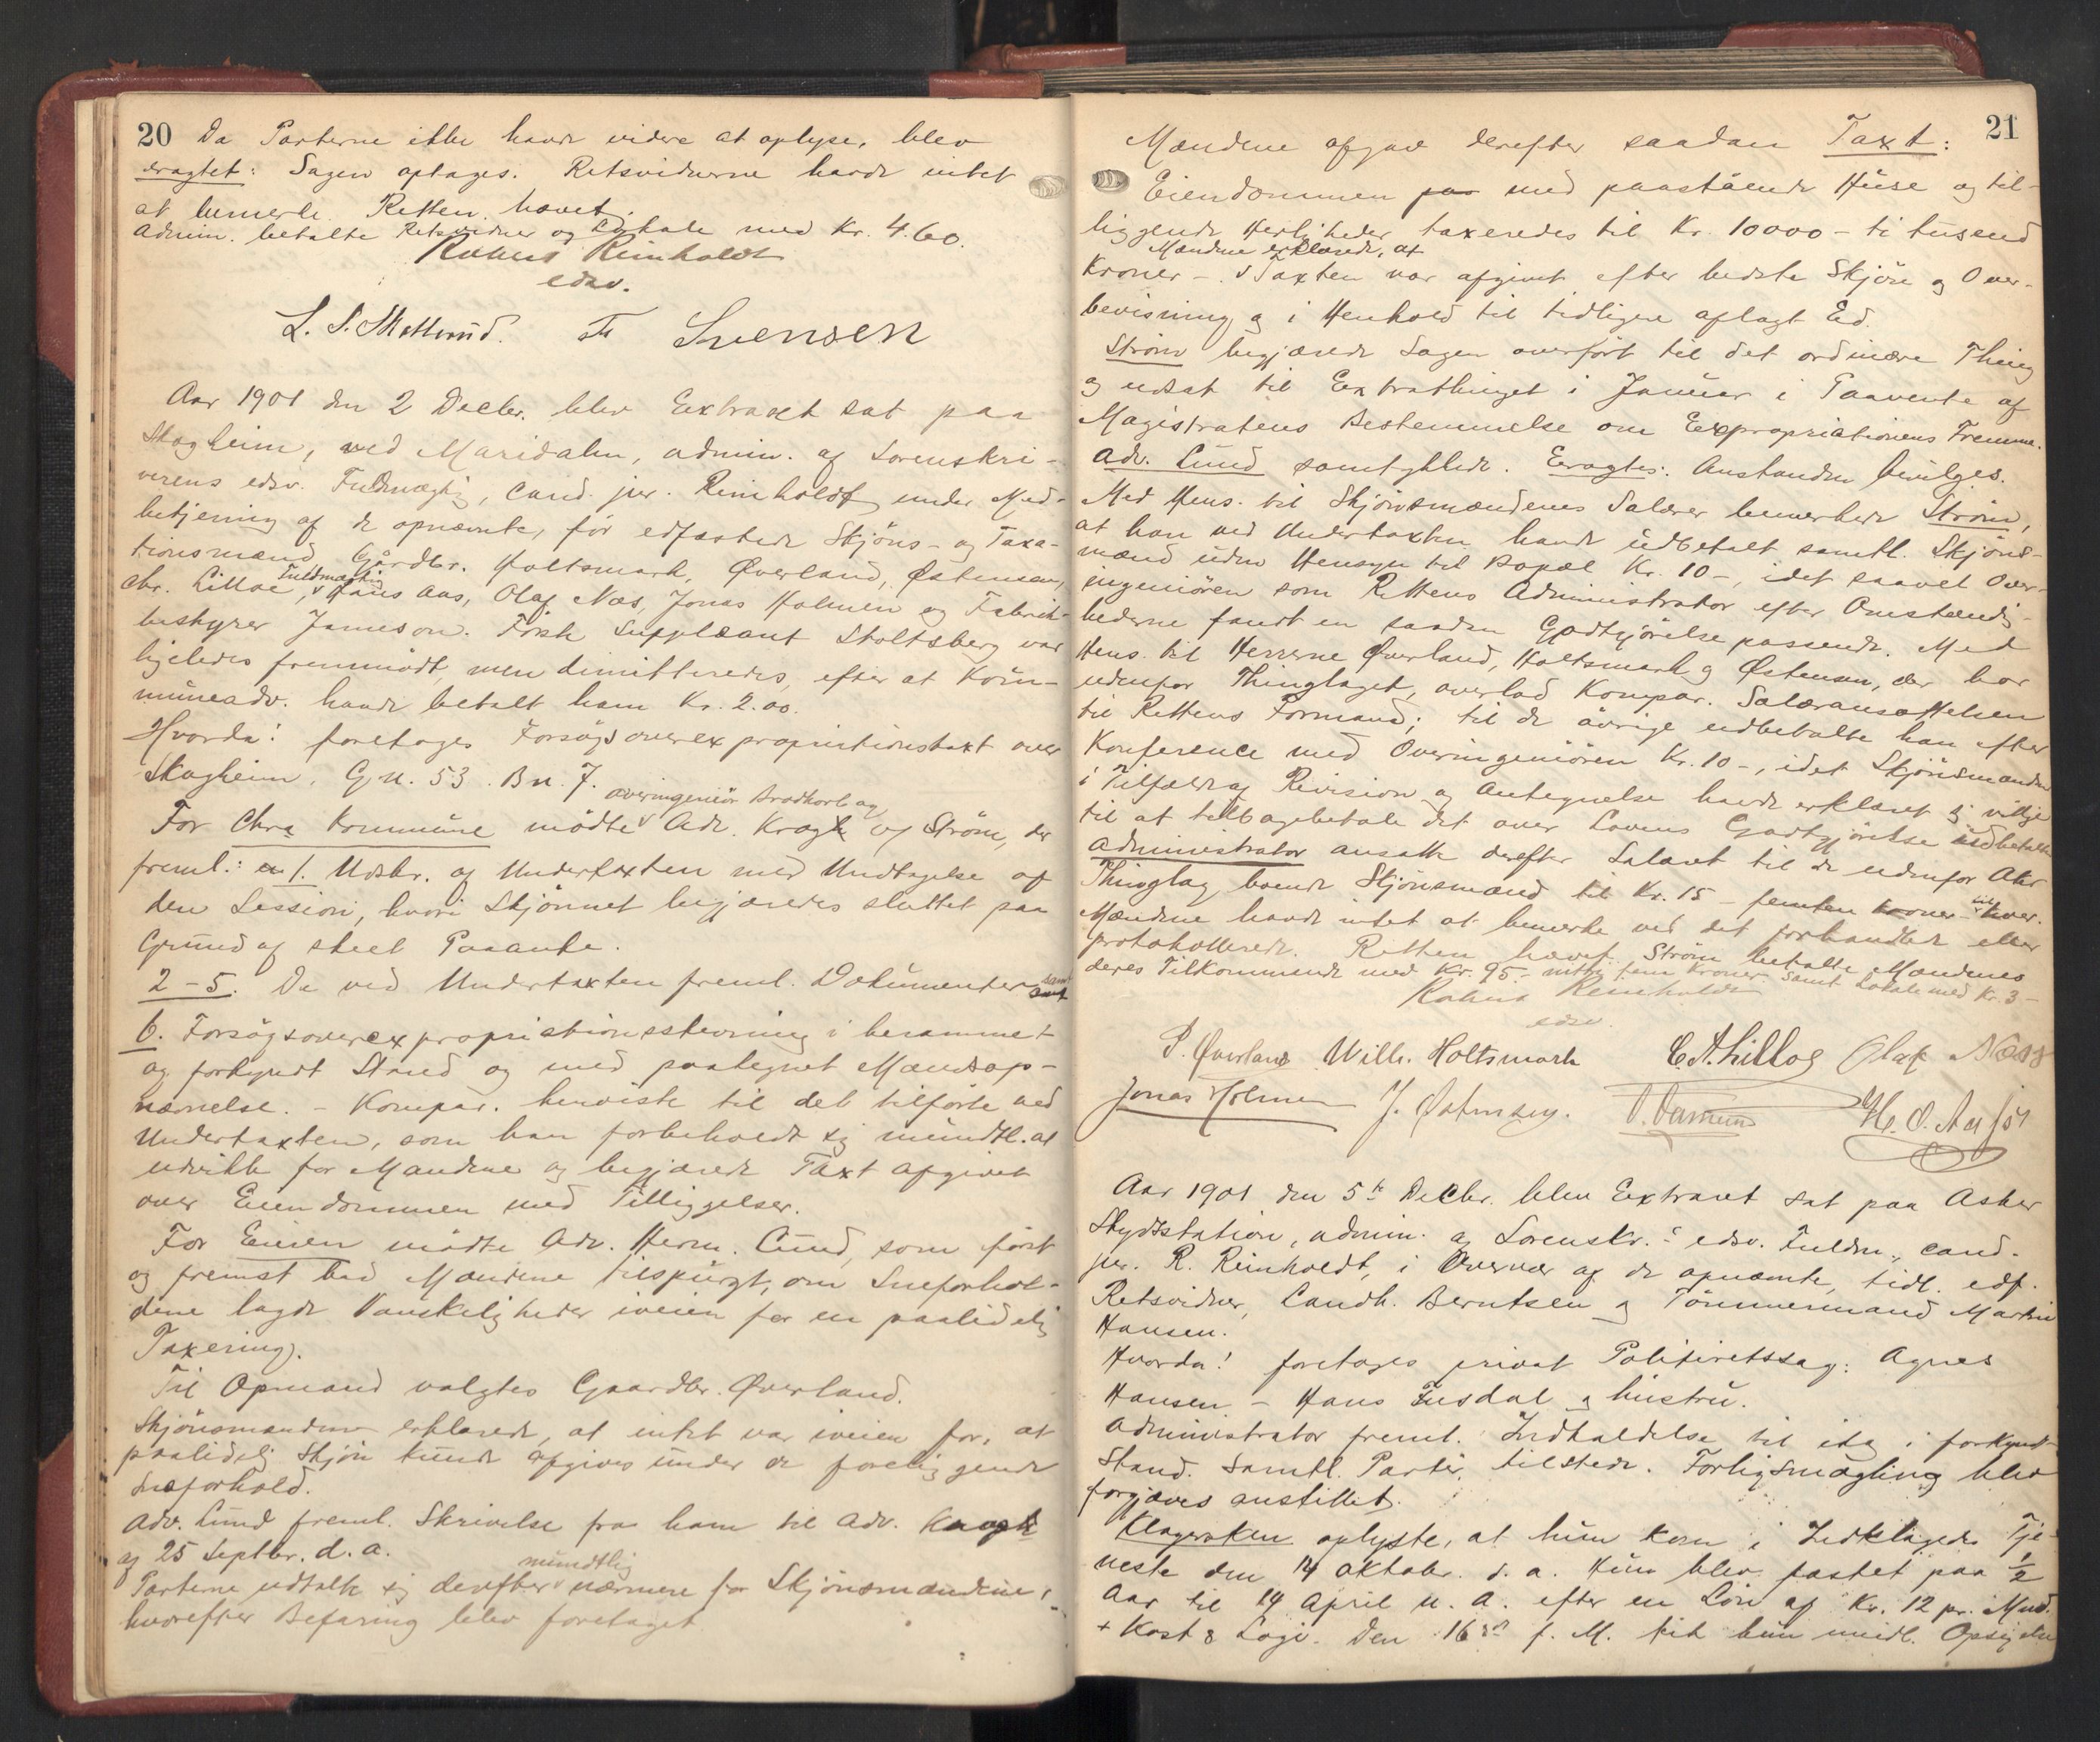 20 Da Parterne ikke havde videre at oplyse, blev
eragtet: Sagen optages. Retsvidnerne havde intet
at bemerke. Retten hævet.
Admin. betalte Retsvidner og Lokale med Kr. 4.60.
Reinholdt
edsv.
L. S. Svensen
Aar 1901 den 2 Decbr. blev Extraret sat paa
Skogheim, ved Maridalen, admin. af Sorenskri-
verens edsv. Fuldmægtig, cand. jur. Reinholdt under Med-
betjening af de opnævnte, før edfæstede Skjöns- og Taxa-
tionsmænd Gårdbr. Holtsmark, Øverland, Østensen,
Chr. Lilloe, Fuldmægtig Hans Aas, Olaf Næs, Jonas Holmen og Fabrik-
bestyrer Jameson. Förste Suppleant Stoltsberg var
ligeledes fremmödt, men dimitteredes, efter at Kom-
muneadv. havde betalt ham Kr. 2.00.
Hvorda! foretoges Forsögsoverexpropriationstaxt over
Skogheim, G.N. 53. Bn. 7.
For Chra Kommune mödte overingeniör Bradkorb og Adv. Kragh og Ström, der
freml.: 1. Udskr. af Undertaxten med Undtagelse af
den Session, hvori Skjönnet begjæredes sluttet paa
Grund af skeet Paaanke.
2-5. De ved Undertaxten freml. Dokumenter samt
6. Forsögsoverexpropriationsstevning i berammet
og forkyndt Stand og med paategnet Mændsop-
nævnelse. - Kompar. henviste til det tilförte ved
Undertaxten, som han forbeholdt sig mundtl. at
udvikle for Mændene og begjærede Taxt afgivet
over Eiendommen med Tilliggelser.
For Eieren mödte Adv. Herm. Lund, som först
og fremst bad Mændene tilspurgt, om Sneforhol-
dene lagde Vanskeligheder iveien for en paalidelig
Taxering.
Til Opmand valgtes Gaardbr. Øverland.
Skjönsmændene erklærede, at intet var iveien for, at
paalidelig Skjön kunde afgives under de foreliggende
Sneforhold.
Adv. Lund freml. Skrivelse fra ham til Adv. Kragh
af 25 Septbr. d. a.
Parterne udtalte sig derefter mundtlig nærmere for Skjönsmændene,
hvorefter Befaring blev foretaget.
21
Mændene afgav derefter saadan Taxt:
Eiendommen med paastående Huse og til-
liggende Herligheder taxeredes til Kr. 10000 - ti tusend
Kroner -. Mændene erklærede, at Taxten var afgivet efter bedste Skjön og Over-
bevisning og i Henhold til tidligere aflagt Ed.
Ström begjærede Sagen overfört til det ordinære Thing
og udsat til Extrathinget i Januar i Paavente af
Magistratens Bestemmelse om Expropriationens Fremme.
Adv. Lund samtykkede. Eragtes: Anstanden bevilges.
Med Hens. til Skjönsmændenes Salærer bemerkede Ström,
at han ved Undertaxten havde udbetalt samtl. Skjöns-
mænd uden Hensyn til Bopæl Kr. 10 -, idet saavel Over-
ingeniören som Rettens Administrator efter Omstændig-
hederne fandt en saadan Godtgjörelse passende. Med
Hens. til Herrerne Øverland, Holtsmark og Østensen, der bor
udenfor Thinglaget, overlod Kompar. Salæransættelsen
til Rettens Formand; til de övrige udbetalte han efter
Konference med Overingeniören Kr. 10 -, idet Skjönsmændene
i Tilfælde af Revision og Antegnelse havde erklæret sig villige
til at tilbagebetale det over Lovens Godtgjörelse udbetalte
Administrator ansatte derefter Salæret til de udenfor Aker
Thinglag boende Skjönsmænd til Kr. 15 - femten Kroner - hver.
Mændene havde intet at bemerke ved det forhandlede eller
protokollerede. Retten hævet. Ström betalte Mændenes
deres Tilkommende med Kr. 95 - nitti fem Kroner samt Lokale med Kr. 3 -
Reinholdt
edsv.
P. Øverland Wilh. Holtsmark C. A. Lilloe Olaf Næss
Jonas Holmen J. Østensen. H. O. Aas
Aar 1901 den 5te Decbr. blev Extraret sat paa Asker
Skydsstation, admin. af Sorenskr.s edsv. Fuldm., cand.
jur. R. Reinholdt, i Overvær af de opnævnte, tidl. edf.
Retsvidner, Landh. Berntsen og Tömmermand Martin
Hansen.
Hvorda! foretoges privat Politiretssag: Agnes
Hansen - Hans Fusdal og hustru.
Administrator freml. Indkaldelse til idag i forkyndt
Stand. Samtl. Parter tilstede. Forligsmægling blev
forgjæves anstillet.
Klagersken oplyste, at hun kom i Indklagedes Tje-
neste den 14 Oktobr. d. a. Hun blev fæstet paa 1/2
Aar til 14 April n. a. efter en Lön af Kr. 12 pr. Mnd.
+ Kost & Logi. Den 16de f. M. fik hun midl. Opsigelse